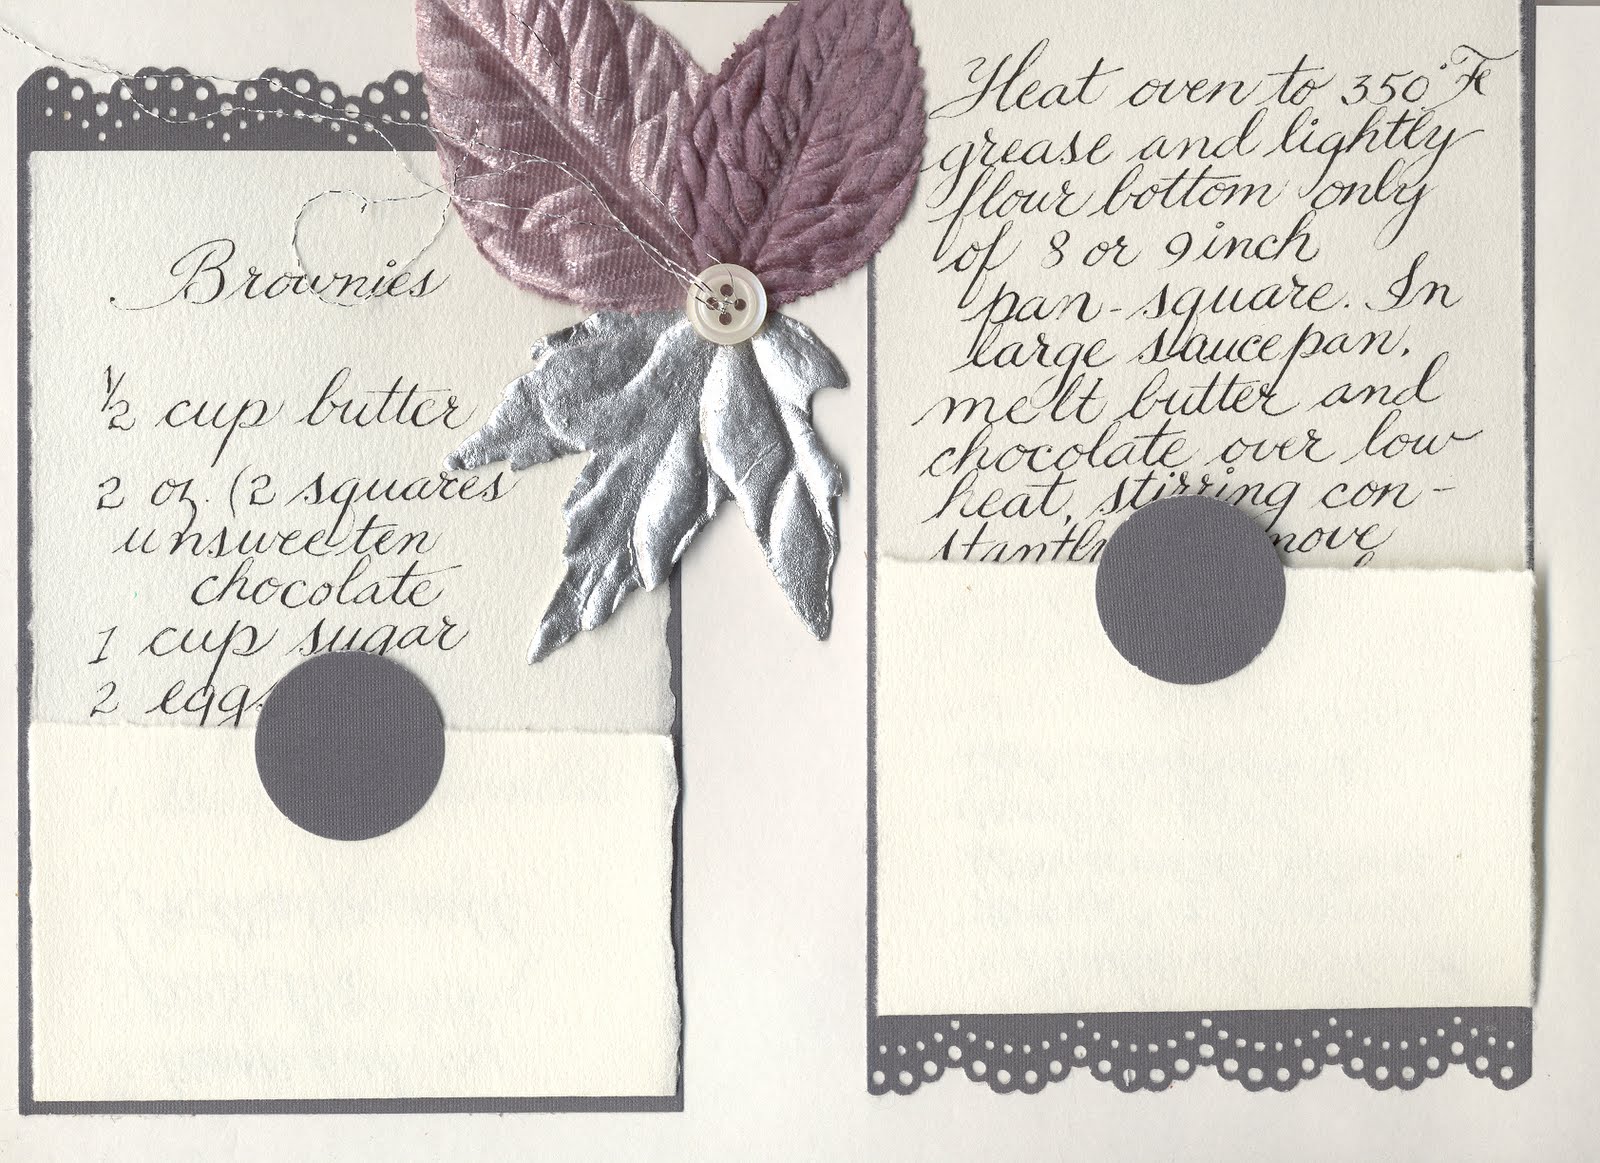 Brownies
1/2 cup butter
2 oz. (2 squares
unsweeten
chocolate
1 cup sugar
2 eggs
Heat oven to 350°F
grease and lightly
flour bottom only
of 8 or 9 inch
pan-square. In
large saucepan,
melt butter and
chocolate over low
heat, stirring con-